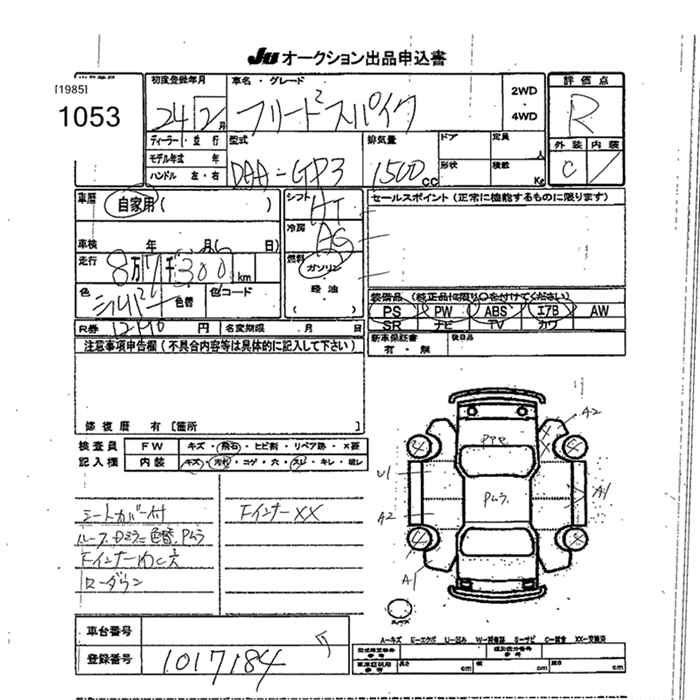 JU オークション出品申込書
[1985]
1053
初度登録年月
24 12月
車名・グレード
フリードスパイク
2WD
・
4WD
評価点
R
外装 内装
C
ディーラー・並行
モデル年式 年
ハンドル 左・右
型式
DAA-GP3
排気量
1500cc
ドア
形状
定員
人
積載
Kg
車歴
自家用( )
車検 年 月( 日)
走行
8万7千300km
色
シルバー
色替
色コード
シフト
AT
冷房
AC
燃料
ガソリン
・
軽油
( )
セールスポイント(正常に機能するものに限ります)
装備品(純正品に限り○を付けてください)
PS PW ABS エアB AW
SR ナビ TV カワ
新車保証書
有・無
後日品
R券 円
名変期限 月 日
注意事項申告欄(不具合内容等は具体的に記入して下さい)
修復歴 有[箇所 ]
検査員
記入欄
FW キズ・飛石・ヒビ割・リペア跡・×要
内装 キズ・汚れ・コゲ・穴・スレ・キレ・破レ
シートカバー付
Fインナー XX
ローダウン
A2
U1
A2
A1
A1
4
4
4
4
A-キズ E-エクボ U-凹み W-補修跡 S-サビ C-腐食 XX-交換済
車台番号
登録番号
1017184
長さ cm 幅 cm 高さ cm